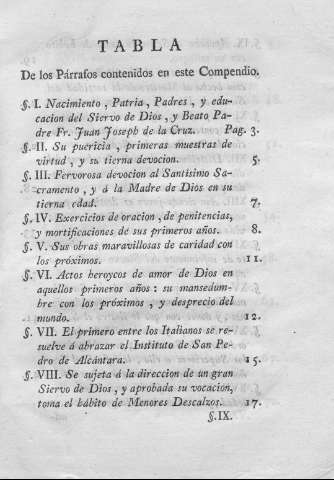 TABLA
De los Párrafos contenidos en este Compendio.
§. I. Nacimiento, Patria, Padres, y edu-
cacion del Siervo de Dios, y Beato Pa-
dre Fr. Juan Joseph de la Cruz. Pag. 3.
§. II. Su puericia, primeras muestras de
virtud, y su tierna devocion. 5.
§. III. Fervorosa devocion al Santisimo Sa-
cramento, y á la Madre de Dios en su
tierna edad. 7.
§. IV. Exercicios de oracion, de penitencias,
y mortificaciones de sus primeros años. 8.
§. V. Sus obras maravillosas de caridad con
los próximos. 11.
§. VI. Actos heroycos de amor de Dios en
aquellos primeros años: su mansedum-
bre con los próximos, y desprecio del
mundo. 12.
§. VII. El primero entre los Italianos se re-
suelve á abrazar el Instituto de San Pe-
dro de Alcántara. 15.
§. VIII. Se sujeta á la direccion de un gran
Siervo de Dios, y aprobada su vocacion,
toma el hábito de Menores Descalzos. 17.
§. IX.